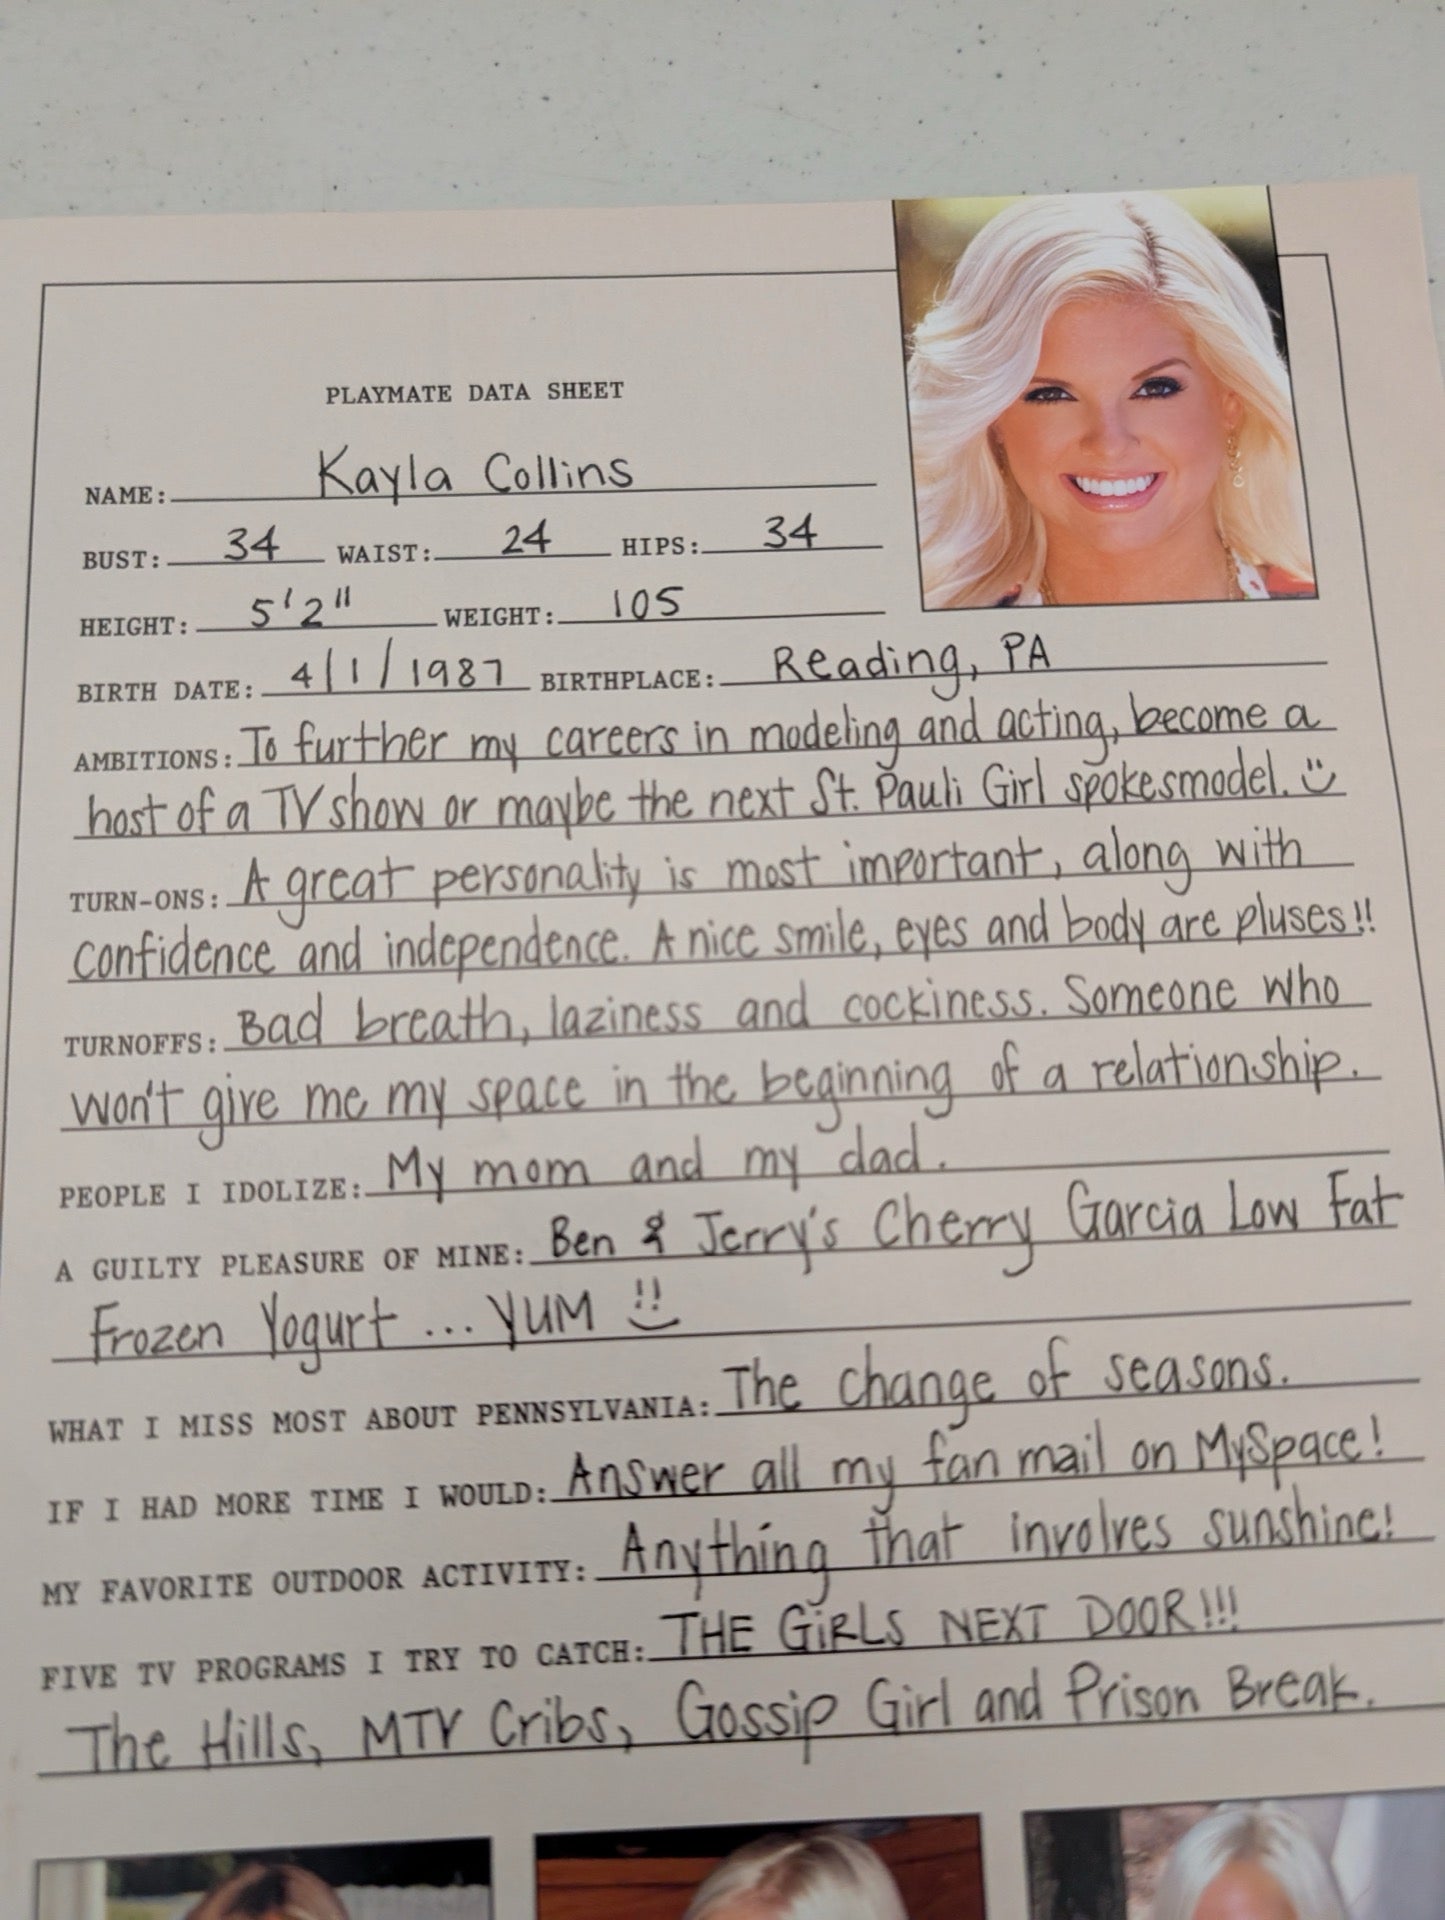 PLAYMATE DATA SHEET
NAME: Kayla Collins
BUST: 34 WAIST: 24 HIPS: 34
HEIGHT: 5'2" WEIGHT: 105
BIRTH DATE: 4/1/1987 BIRTHPLACE: Reading, PA
AMBITIONS: To further my careers in modeling and acting, become a
host of a TV show or maybe the next St. Pauli Girl spokesmodel.
TURN-ONS: A great personality is most important, along with
confidence and independence. A nice smile, eyes and body are pluses!!
TURNOFFS: Bad breath, laziness and cockiness. Someone who
won't give me my space in the beginning of a relationship.
PEOPLE I IDOLIZE: My mom and my dad.
A GUILTY PLEASURE OF MINE: Ben & Jerry's Cherry Garcia Low Fat
Frozen Yogurt ... YUM !!
WHAT I MISS MOST ABOUT PENNSYLVANIA: The change of seasons.
IF I HAD MORE TIME I WOULD: Answer all my fan mail on MySpace!
MY FAVORITE OUTDOOR ACTIVITY: Anything that involves sunshine!
FIVE TV PROGRAMS I TRY TO CATCH: THE GiRLS NEXT DOOR!!!
The Hills, MTV Cribs, Gossip Girl and Prison Break.